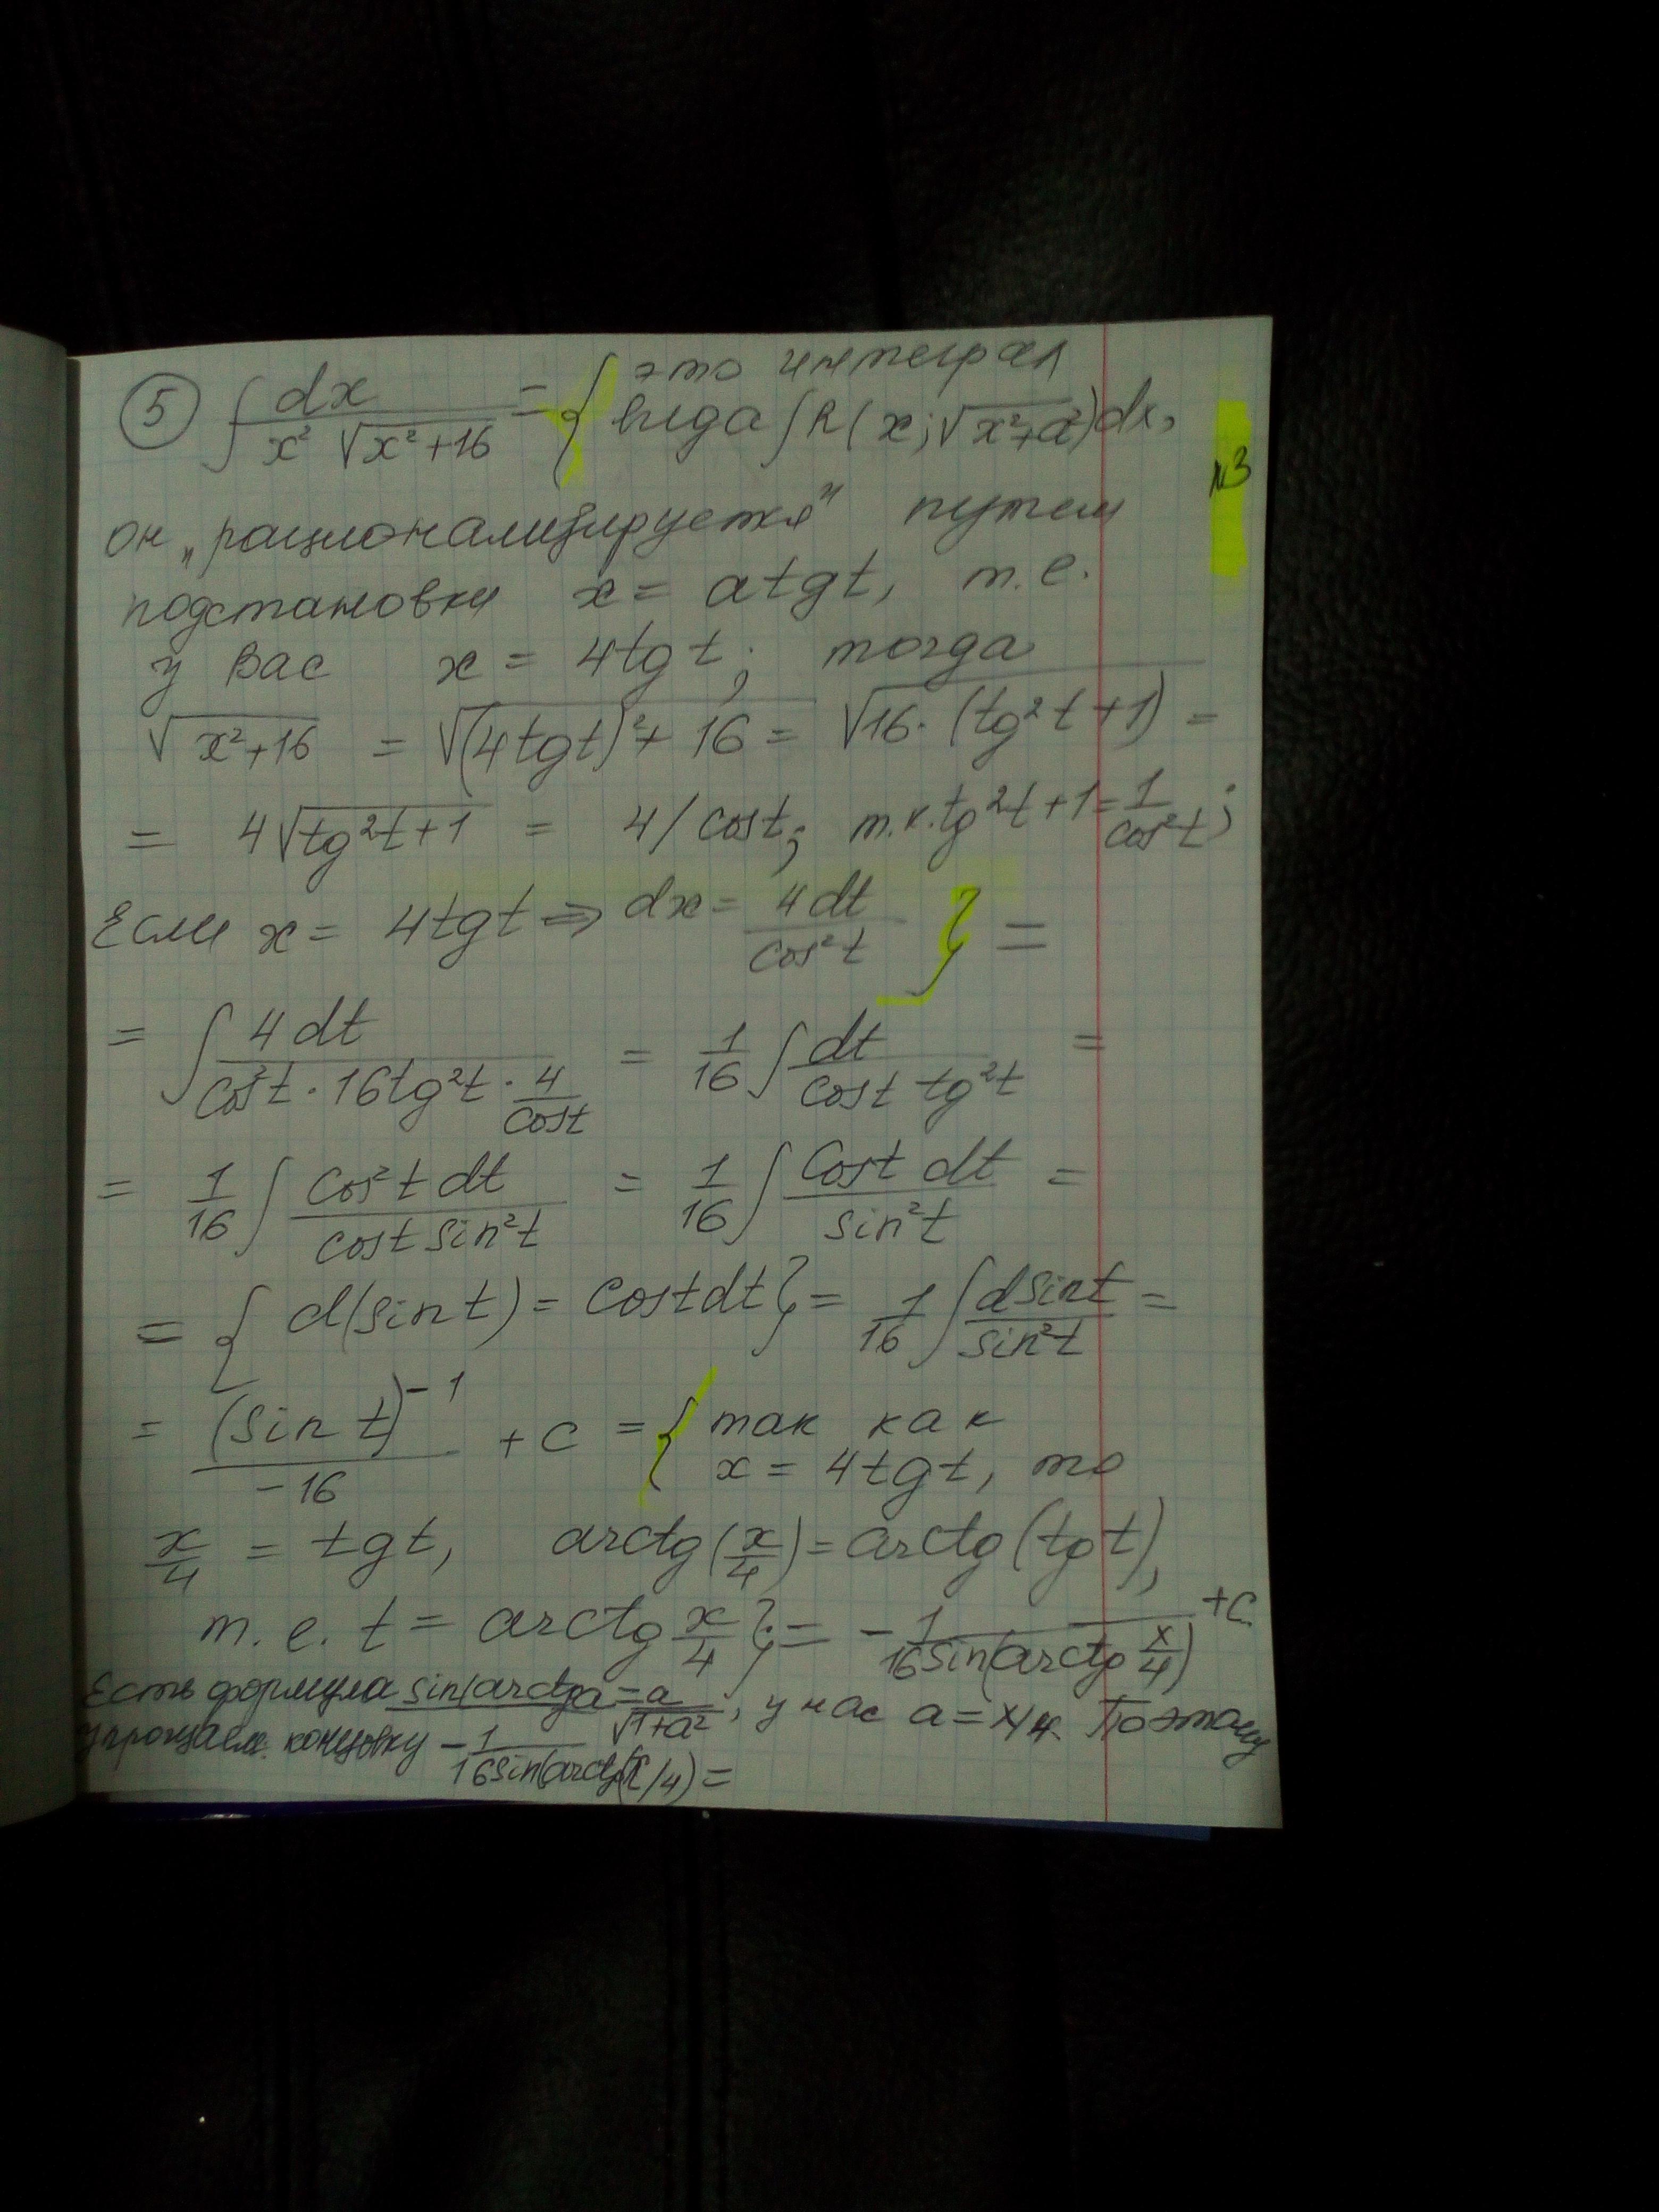 ⑤ ∫ dx / (x² √(x²+16)) = { это интеграл
вида ∫R(x;√(x²+a²))dx,
№3
он „рационализируется" путем
подстановки x = a tg t, т.е.
у Вас x = 4tg t; тогда
√(x²+16) = √((4tg t)²+16) = √(16·(tg²t+1)) =
= 4√(tg²t+1) = 4/cost; т.к. tg²t+1 = 1/cos²t;
Если x = 4tgt ⇒ dx = 4dt/cos²t } =
= ∫ 4dt / (cos²t · 16tg²t · 4/cost) = 1/16 ∫ dt / (cost tg²t) =
= 1/16 ∫ cos²t dt / (cost sin²t) = 1/16 ∫ cost dt / sin²t =
= { d(sin t) = costdt } = 1/16 ∫ dsint / sin²t =
= (sin t)⁻¹ / -16 + c = { так как
x = 4tgt, то
x/4 = tgt, arctg(x/4) = arctg(tgt),
т.е. t = arctg x/4 } = - 1 / (16sin(arctg x/4)) + c.
Есть формула sin(arctga = a/√(1+a²), у нас a = x/4. Поэтому
упрощаем концовку - 1 / (16sin(arctg(x/4) =